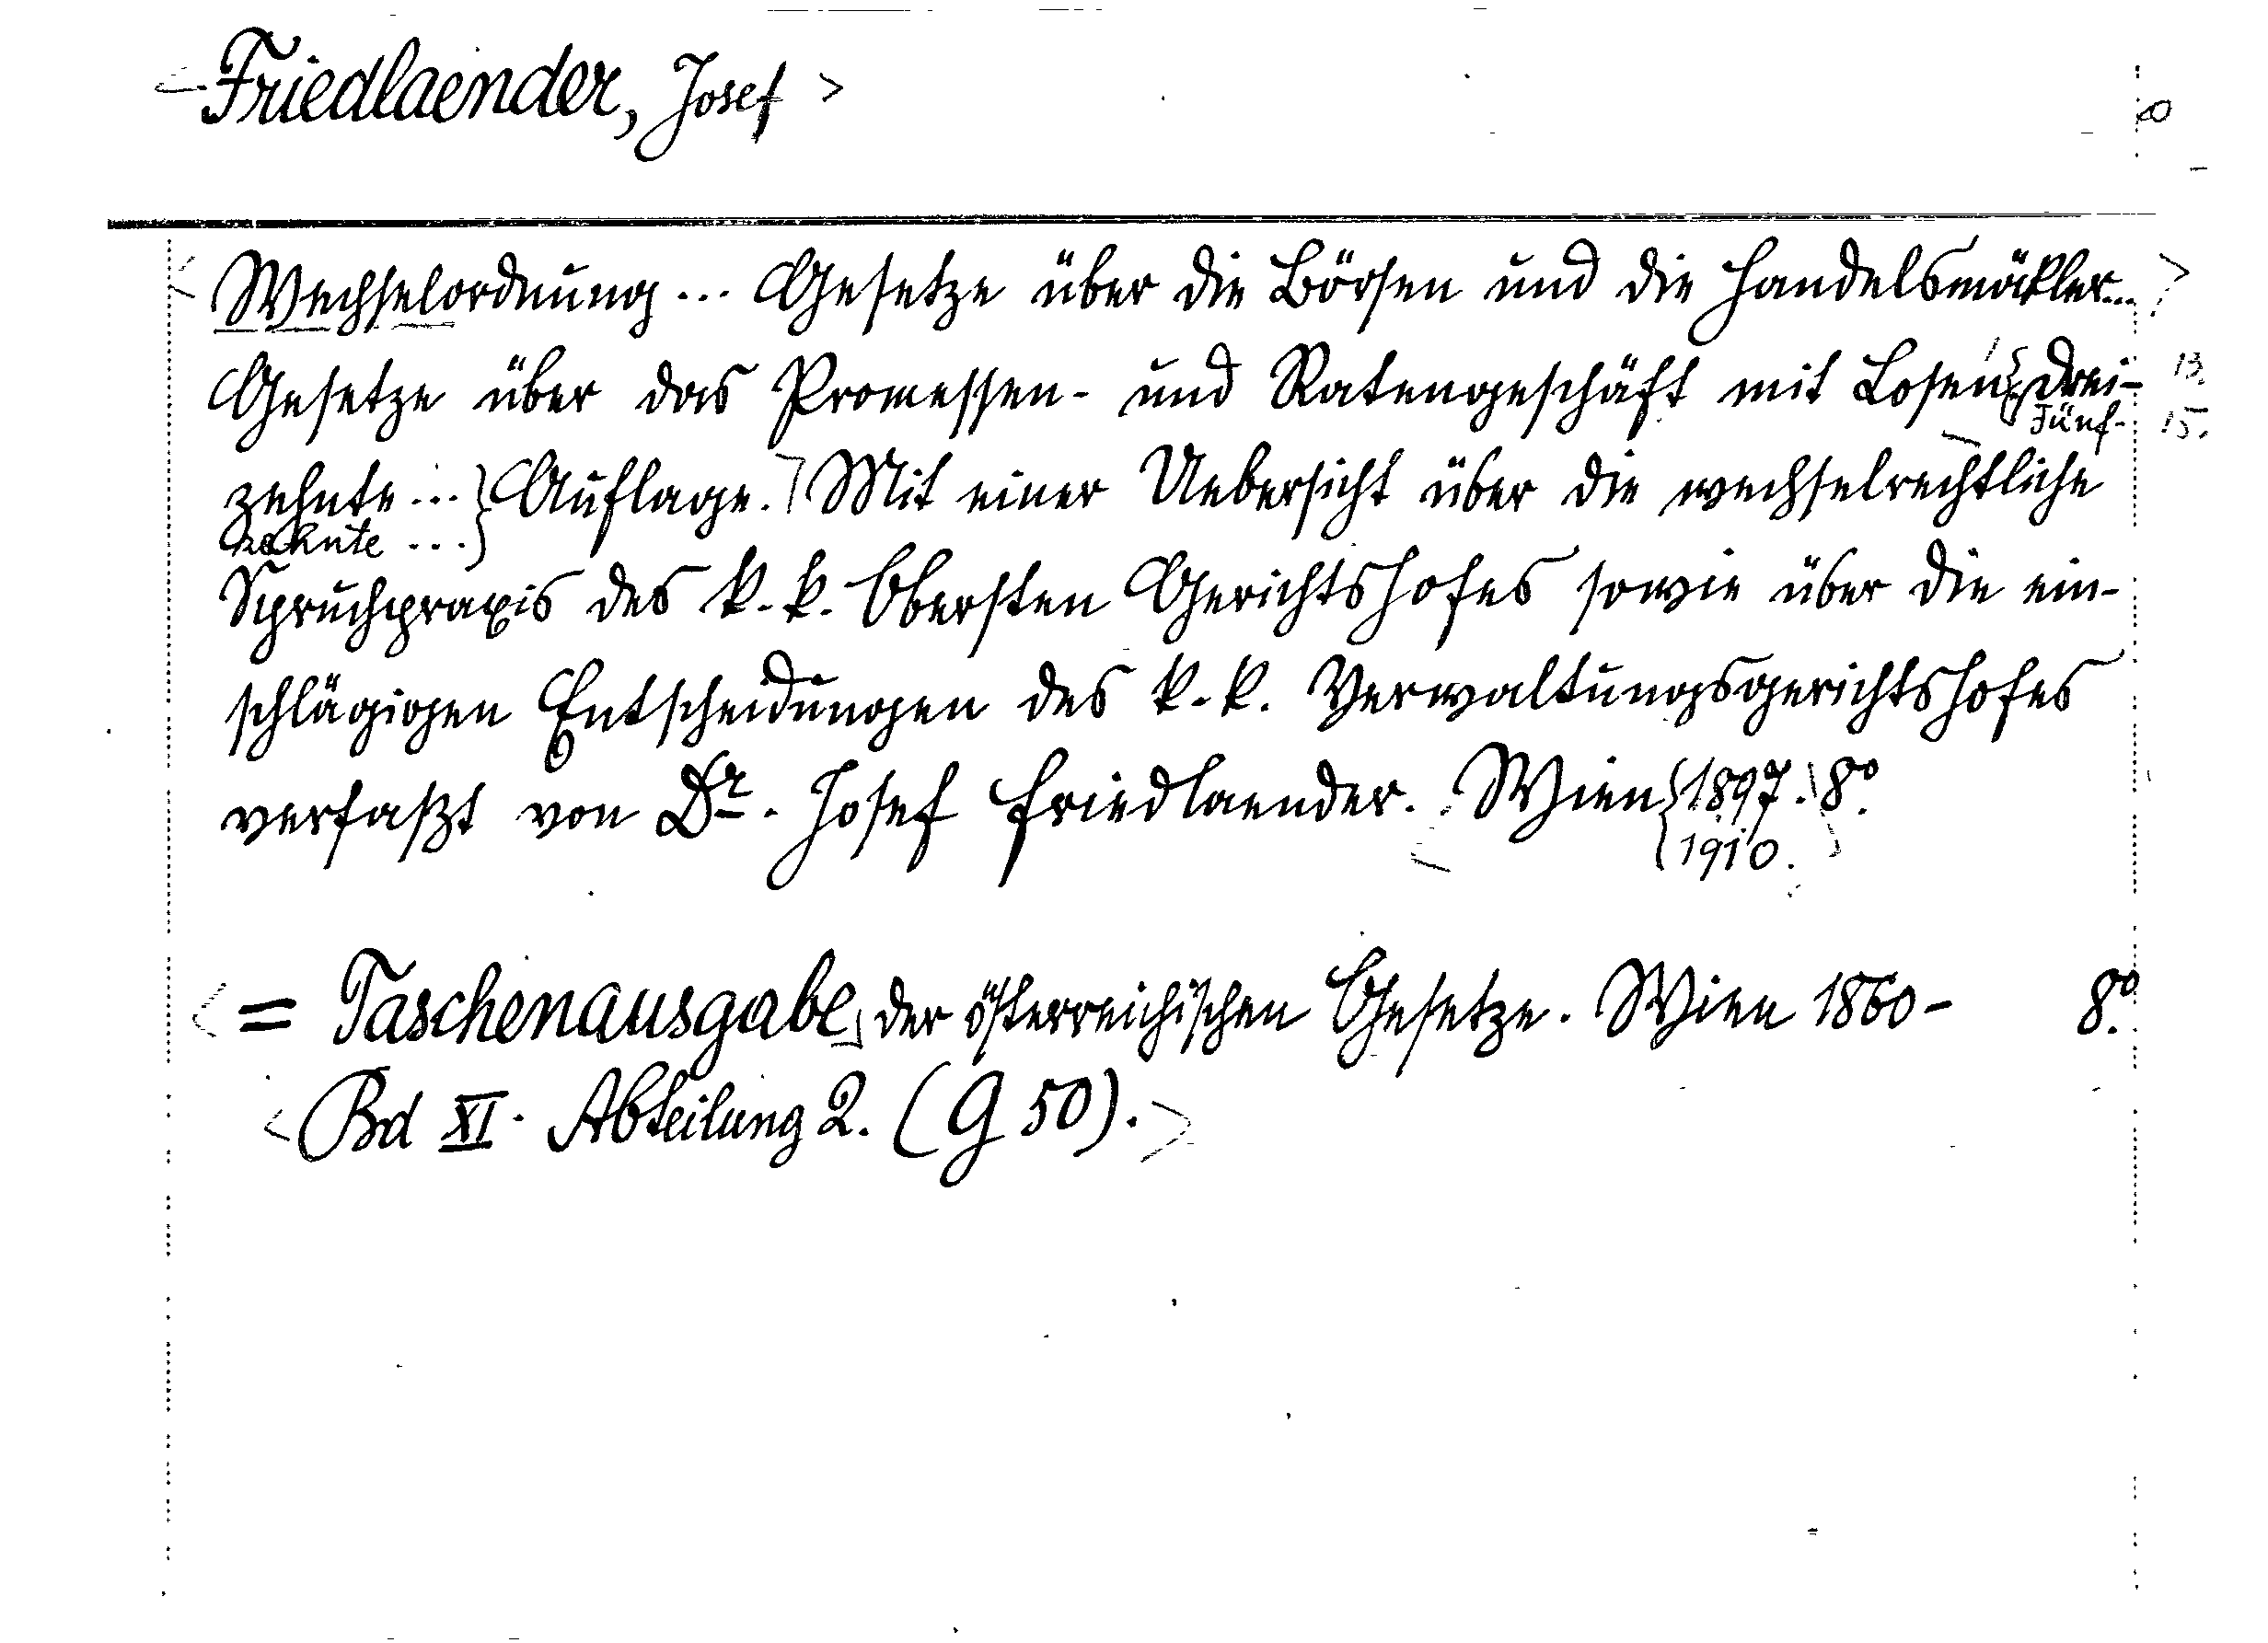 <Friedlaender, Josef>
<Wechselordnung... Gesetze über die Börsen und die Handelsmäkler...>
Gesetze über das Promessen- und Ratengeschäft mit Losen {Drei- 13.
Fünf- 15.
zehnte...} Auflage. Mit einer Uebersicht über die wechselrechtliche
zehnte ...}
Spruchpraxis des k. k. Obersten Gerichtshofes sowie über die ein-
schlägigen Entscheidungen des k. k. Verwaltungsgerichtshofes
verfaßt von Dr. Josef Friedlaender. Wien {1897. 8º.
{1910.
<= Taschenausgabe der österreichischen Gesetze. Wien 1860- 8º.
<Bd XI. Abteilung 2. (G 50).>